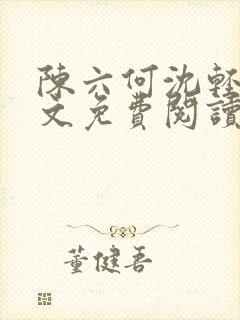 陳六何沈輕
文免費閱讀
董健吾